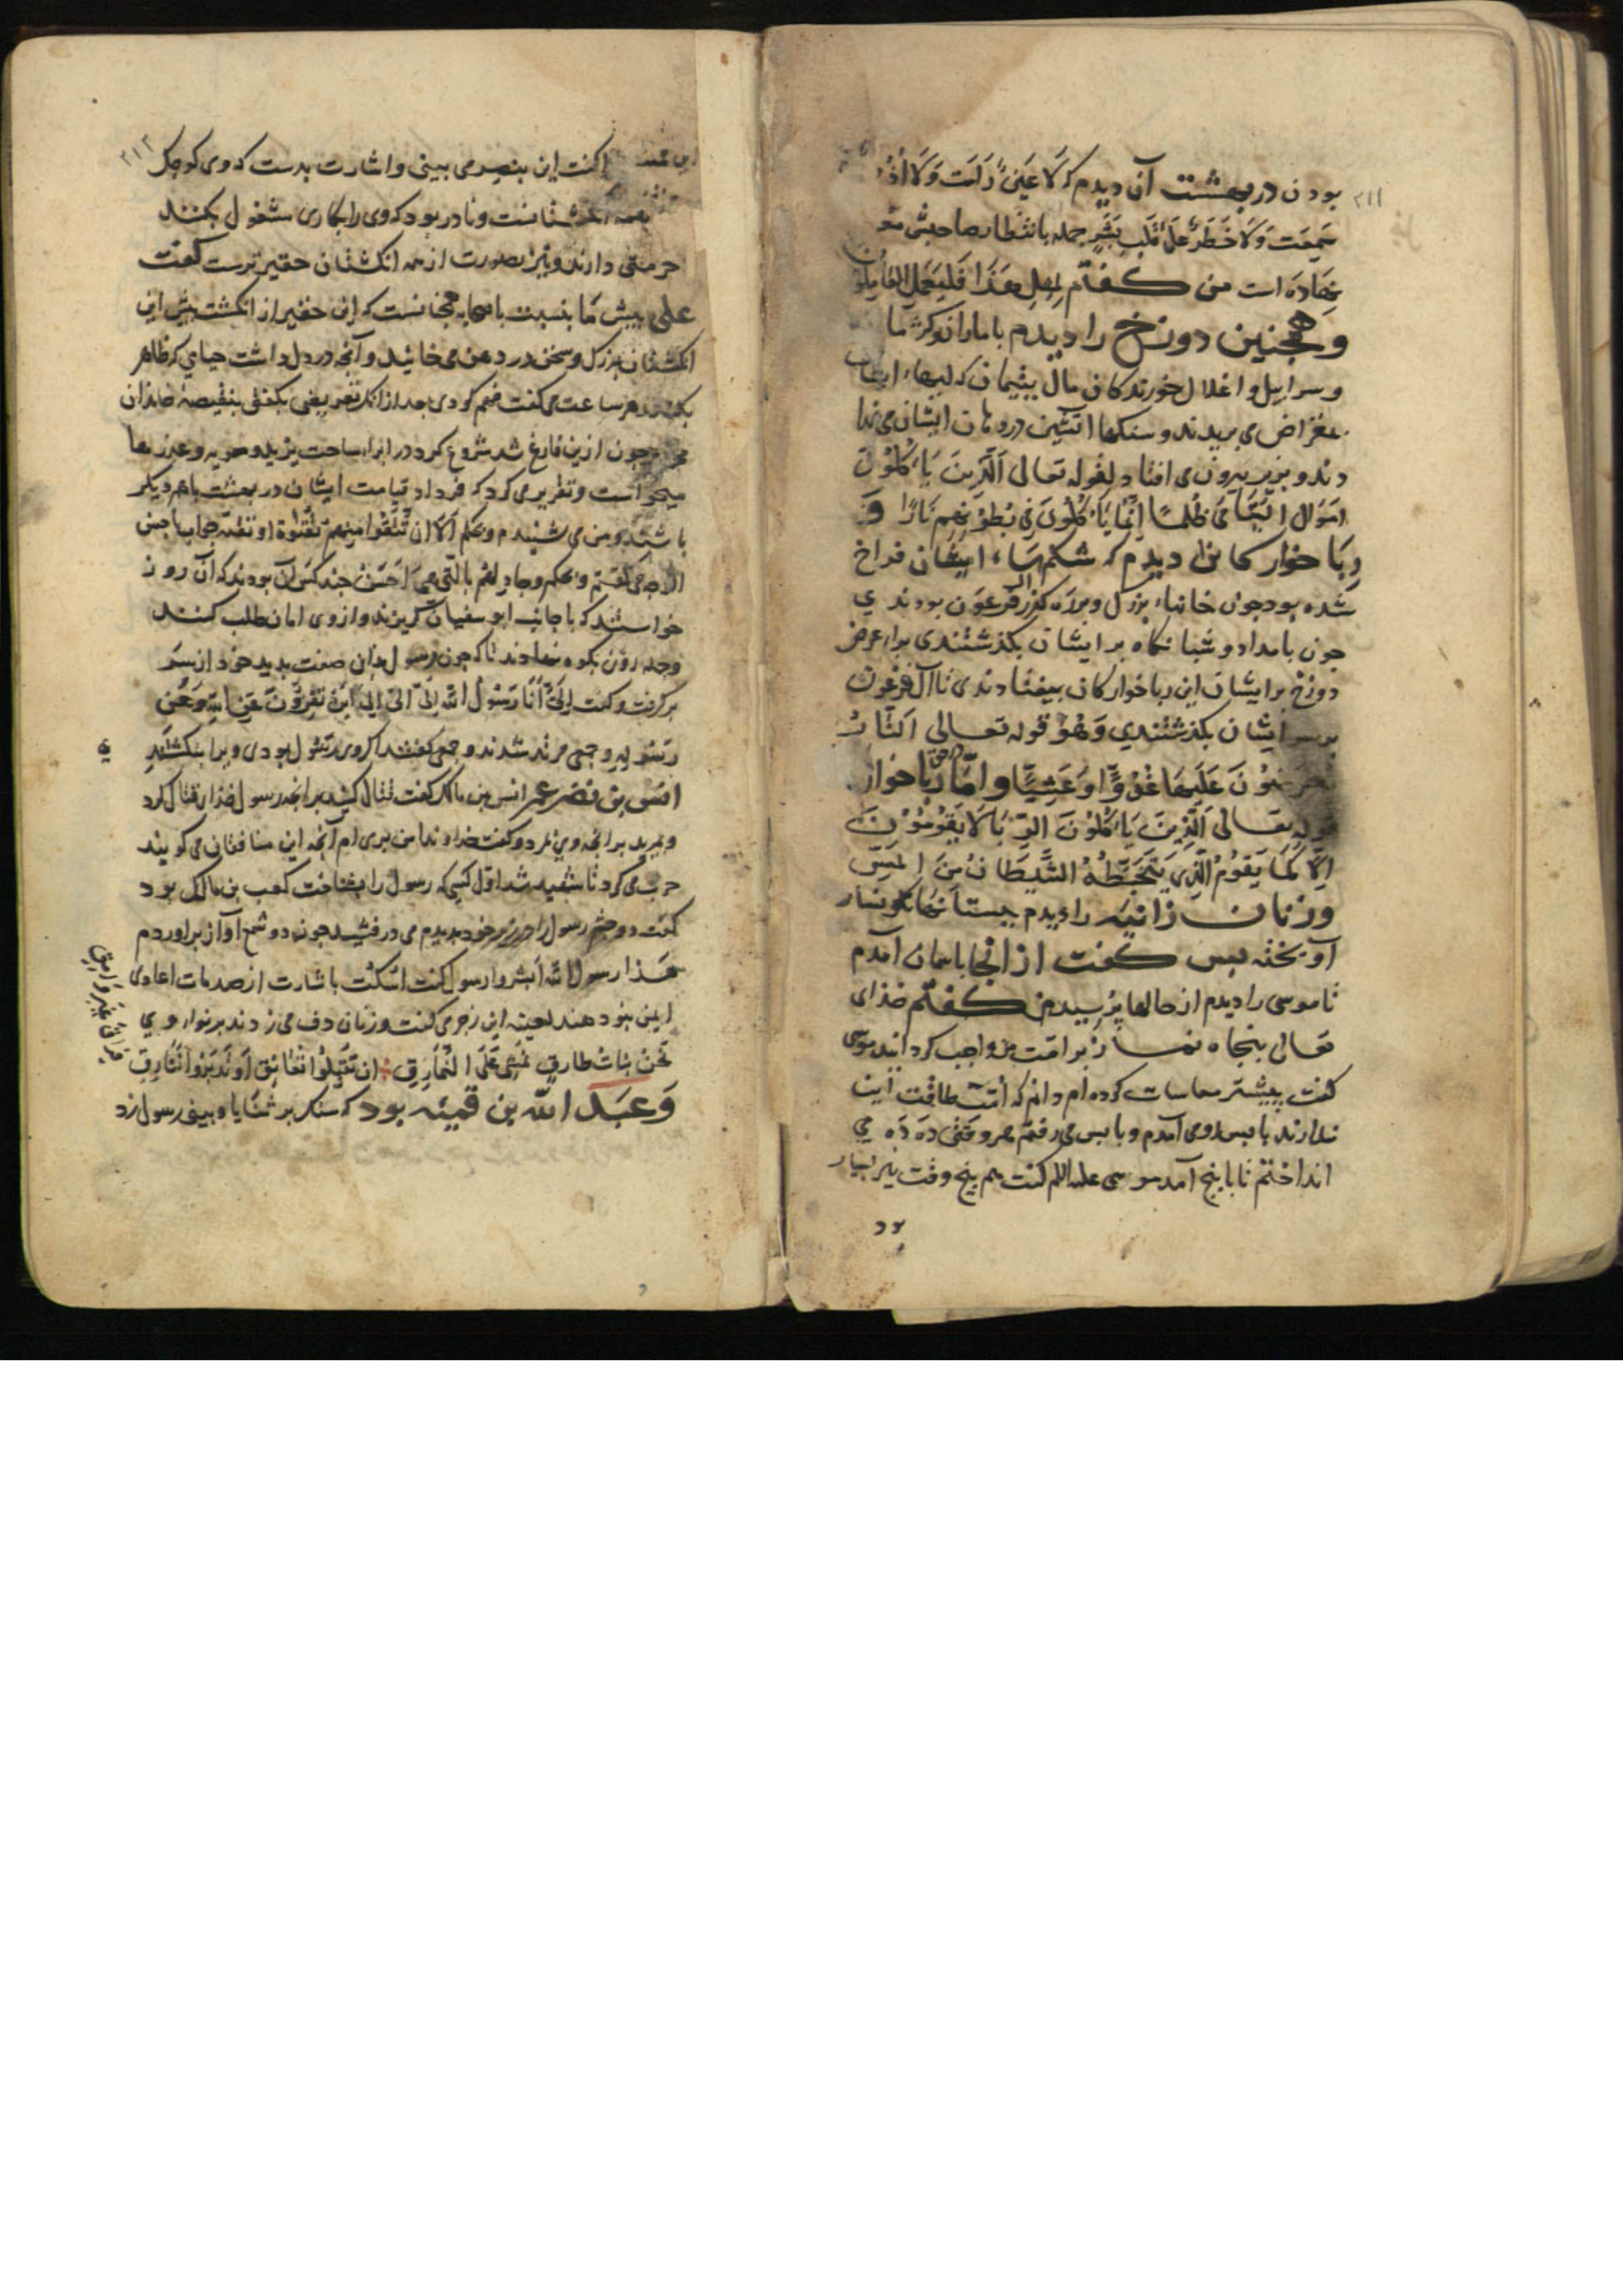 ۲۱۱
بودن در بهشت آن دیدم که لَا عَیْنٌ رَأَت وَلَا اُذُن
سَمِعَت وَلَا خَطَرَ عَلَی قَلبِ بَشَرٍ جمله بانتظار صاحبش
نهاده است من کفتم لِمِثلِ هَذَا فَلیَعمَلِ العَامِلُون
وهمچنین دوزخ را دیدم با ماران وکژدمها
وسرابیل واغلال خورندکان مال یتیمان که لبهاء ایشان
بمقراض می بریدند وسنکهاء آتشین در دهان ایشان می نها
دند وبزیر بیرون می افتاد لقوله تعالی اَلَّذِینَ یَأکُلُونَ
اَموَالَ الیَتَامَی ظُلمًا اِنَّمَا یَأکُلُونَ فِی بُطُونِهِم نَارًا وَ
رِبَا خوارکانرا دیدم که شکمهاء ایشان فراخ
شده بود چون خانهاء بزرک وبر راه کذر آل فرعون بودند ی
چون بامداد وشبانکاه بر ایشان بکذشتندی براء عرض
دوزخ بر ایشان این رباخوارکان بیفتادندی تا آل فرعون
بر سر ایشان بکذشتندی وَهُوَ قوله تعالی اَلنَّارُ
یُعرَضُونَ عَلَیهَا غُدُوًّا وَعَشِیًّا واما در حق رباخوار
قوله تعالی اَلَّذِینَ یَأکُلُونَ الرِّبَا لَا یَقُومُونَ
اِلَّا کَمَا یَقُومُ الَّذِی یَتَخَبَّطُهُ الشَّیطَانُ مِنَ المَسِّ
وزنان زانیه را دیدم بپستانها نکونسار
آویخته پس کفت از انجا باسمان آمدم
تا موسی را دیدم از حالها پرسید من کفتم خذای
تعالی پنجاه نماز بر امت من واجب کردانید موسی
کفت پیشتر مماسات کرده ام دانم که اُمّتت طاقت این
ندارند باپس روی آمدم وباپس می رفتم هر وقتی ده ده می
انداختم تا با پنج آمد موسی علیه السلم کفت هم پنج وقت نیز بسیار
بود
۲۱۲
کفت این بنصر می بینی واشارت بدست که وی کوچک
همه انکشتانست ونادر بود که وی را بکاری مشغول بکنند
حرمتی دارند ونیز بصورت از همه انکشتان حقیرترست کفت
علی پیش ما بنسبت با صحابه همچنانست که این حقیر از انکشت پیش این
انکشتان بزرک وسخن در دهن می خائید وآنچه در دل داشت حیای که ظاهر
بکند هر ساعت می کفت فهم کردی بعد از انک تعریضی بکفتی بنقیصۀ خاندان
چون ازین فارغ شد شروع کرد در ابراء ساحت یزید ومعویه وعذرها
میخواست وتقریر می کرد که فردا قیامت ایشان در بهشت باهم دیکر
باشند ومن می شنیدم وبحکم اِلَّا اَن تَتَّقُوا مِنهُم تُقَاةً او تقیّه جواب
می کفتم وبحکم وجادلهم بالتی هی اَحسَن چند کس آن بودند که آن روز
خواستند که با جانب ابو سفیان کریزند واز وی امان طلب کنند
وجمله روی بکوه نهادند تا که چون رسول بدان صفت بدید خود از سر
بر کرفت وکفت اِلَیَّ اَنَا رَسُولُ الله اِلَیَّ اِلَیَّ اِلَی اَینَ تَفِرُّونَ عَنِ اللهِ وَعَن
رَسُولِهِ وجمعی مرتد شدند وجمعی کفتند اکر وی رسول بودی ویرا نبکشتندی
انس بن نضر عم انس بن مالک کفت قتال کنید بر انچه رسول خذا قتال کرد
وبمیرید بر انچه وی مرد وکفت خداوندا من بری ام از انچه این منافقان می کویند
حرب می کرد تا شهید شد اوّل کسی که رسول را بشناخت کعب بن مالک بود
کفت دو چشم رسول را در زیر خود بدیدم می درفشید چون دو شمع آواز براوردم
هَذا رسول الله اَبشروا رسول کفت اُسکُت باشارت از صدمات اعادی
ایمن بنود هند لعینه این رجز می کفت وزنان دف می زدند بر نواء وی
نَحنُ بَنَاتُ طارِقِ نَمشِی عَلَی النَّمَارِق اِن تُقبِلُوا نُعَانِق اَو تُدبِرُوا نُفَارِق
فِرَاقًا غَیرَ وَامِق
وَعَبد الله بن قمیئه بود که سنک بر ثنایا وبینی رسول زد